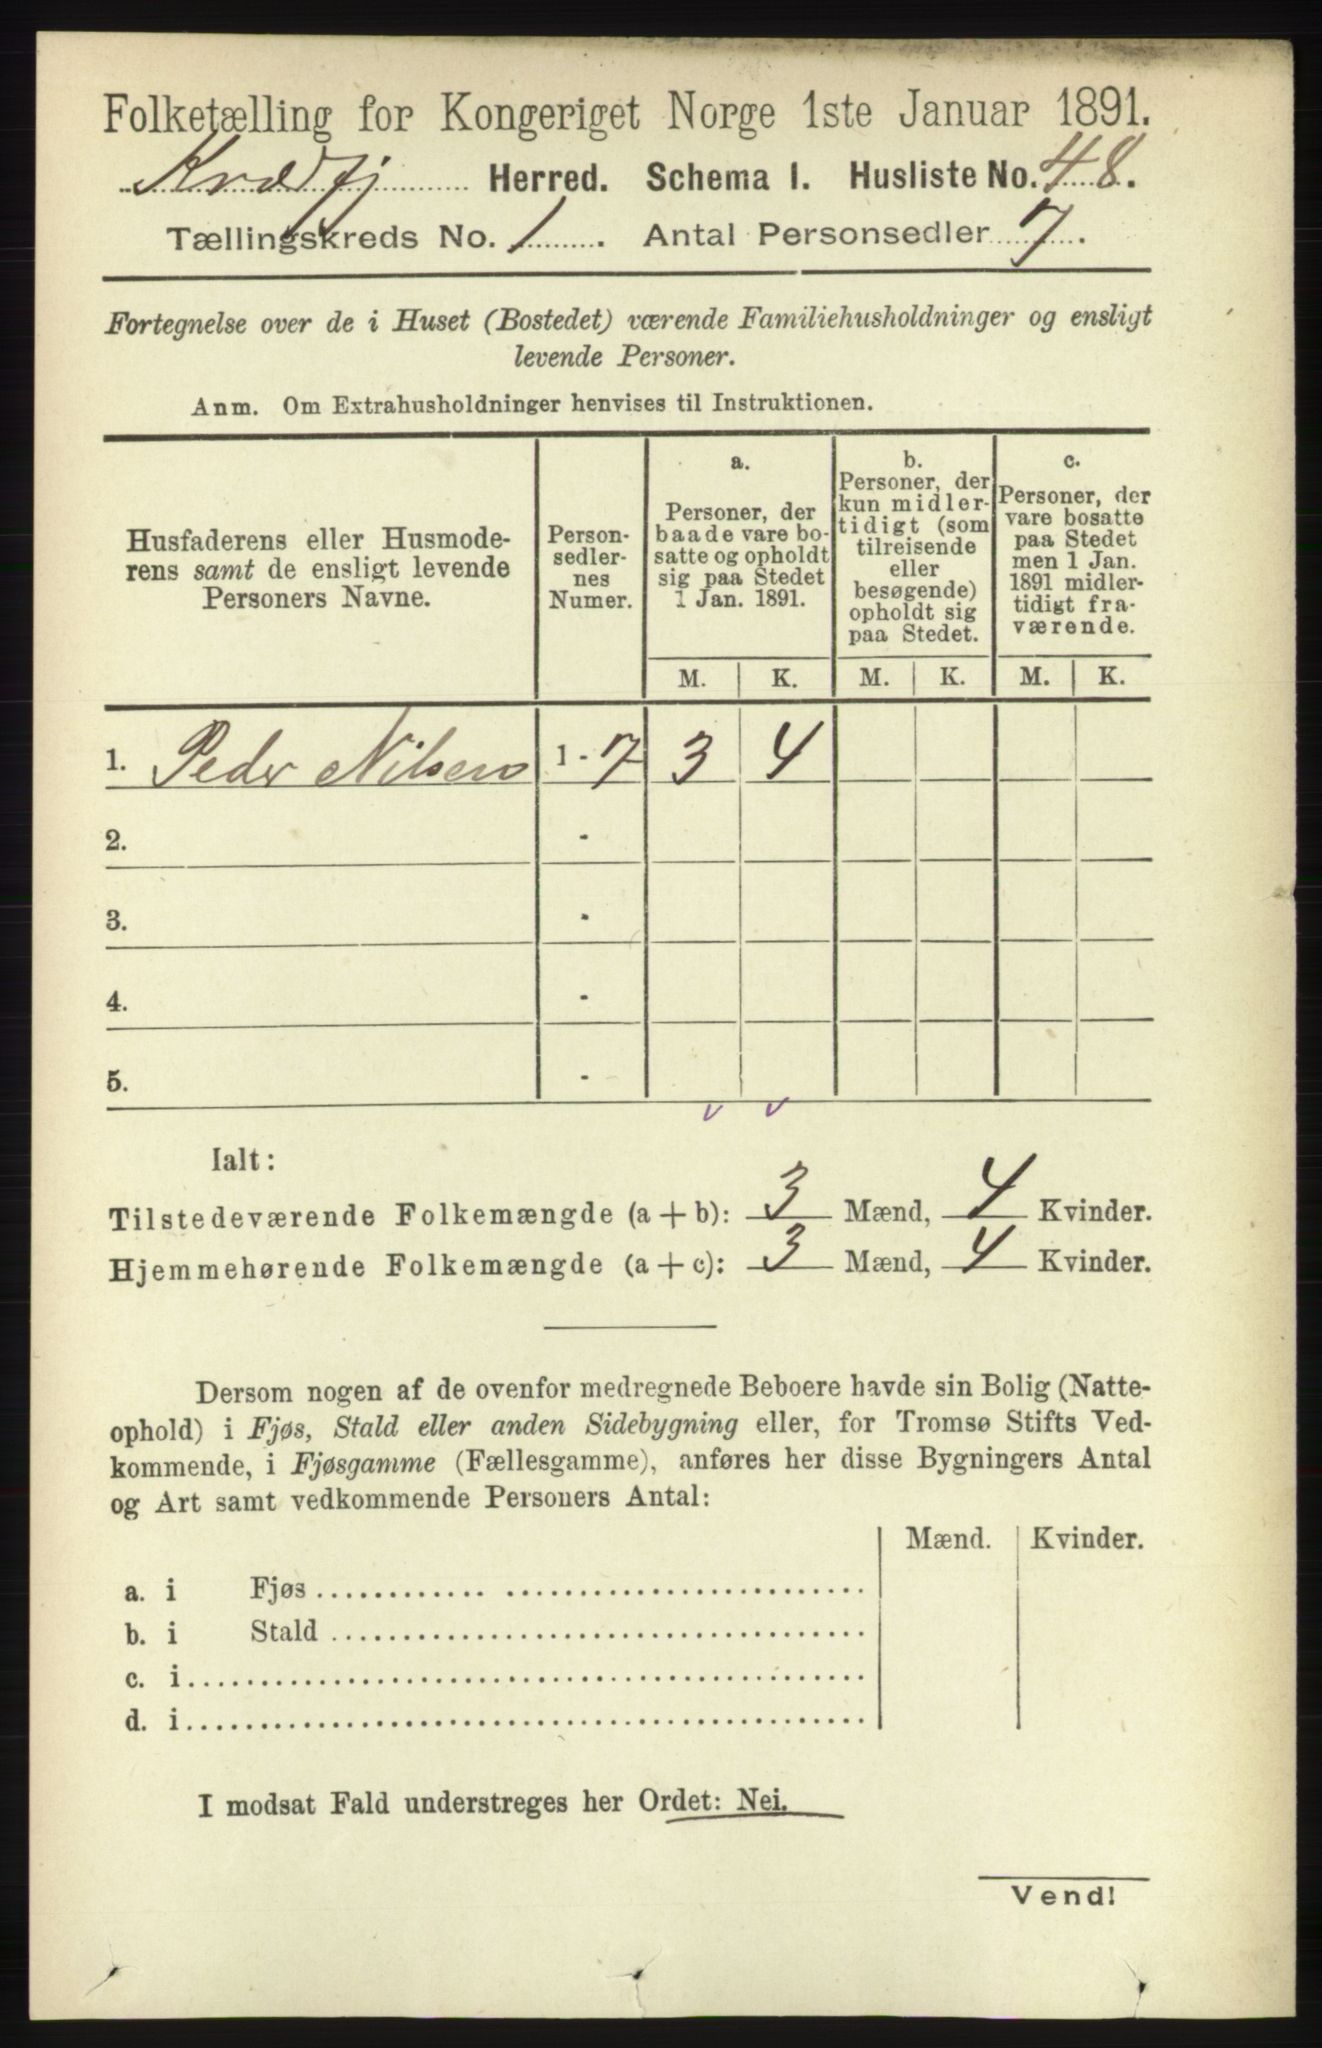 Folketælling for Kongeriget Norge 1ste Januar 1891.
Kvædfj Herred. Schema I. Husliste No. 48.
Tællingskreds No. 1. Antal Personsedler 7.
Fortegnelse over de i Huset (Bostedet) værende Familiehusholdninger og ensligt
levende Personer.
Anm. Om Extrahusholdninger henvises til Instruktionen.
Husfaderens eller Husmode-
rens samt de ensligt levende
Personers Navne.
Person-
sedler-
nes
Numer.
a.
Personer, der
baade vare bo-
satte og opholdt
sig paa Stedet
1 Jan. 1891.
b.
Personer, der
kun midler-
tidigt (som
tilreisende
eller
besøgende)
opholdt sig
paa Stedet.
c.
Personer, der
vare bosatte
paa Stedet
men 1 Jan.
1891 midler-
tidigt fra-
værende.
M. K. M. K. M. K.
1. Peder Nilsen 1 - 7 3 4
2. -
3. -
4. -
5. -
Ialt:
Tilstedeværende Folkemængde (a + b): 3 Mænd, 4 Kvinder.
Hjemmehørende Folkemængde (a + c): 3 Mænd, 4 Kvinder.
Dersom nogen af de ovenfor medregnede Beboere havde sin Bolig (Natte-
ophold) i Fjøs, Stald eller anden Sidebygning eller, for Tromsø Stifts Ved-
kommende, i Fjøsgamme (Fællesgamme), anføres her disse Bygningers Antal
og Art samt vedkommende Personers Antal:
Mænd. Kvinder.
a. i Fjøs
b. i Stald
c. i
d. i
I modsat Fald understreges her Ordet: Nei.
Vend!